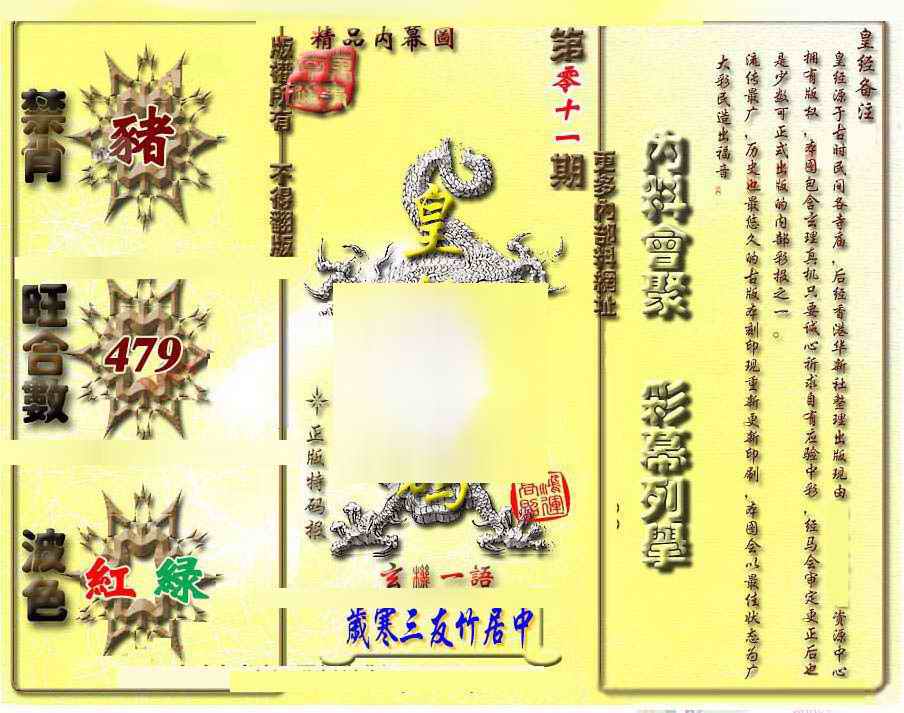 皇经备注
皇经源于古时民间各寺庙，后经香港华新社整理出版现由
资源中心
拥有版权，本图包含玄理真机只要诚心祈求自有应验中彩，经马会审定更正后也
是少数可正式出版的内部彩报之一。
流传最广，历史也最悠久的古版本刻印现重新更新印刷，本图会以最佳状态为广
大彩民造出福音
内料會聚 彩幕列學
更多內部料網址
第零十一期
精品内幕圖
皇
版權所有 不得翻版
正版特码报
鴻運
玄機一語
歲寒三友竹居中
禁肖
豬
旺合數
479
波色
紅 綠